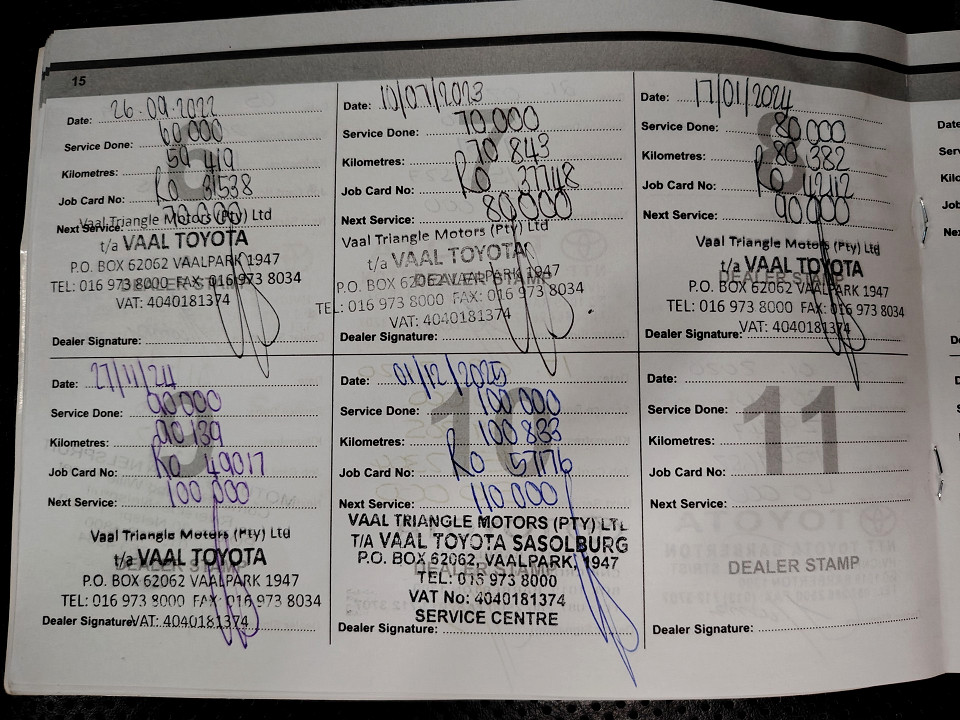 15
Date: 26.09.2022
Service Done: 60 000
Kilometres: 59 419
Job Card No: RO 31538
Next Service: 70 000
Vaal Triangle Motors (Pty) Ltd
t/a VAAL TOYOTA
P.O. BOX 62062 VAALPARK 1947
TEL: 016 973 8000 FAX: 016 973 8034
VAT: 4040181374
Dealer Signature:
Date: 10/07/2023
Service Done: 70.000
Kilometres: 70 843
Job Card No: RO 37148
Next Service: 80.000
Vaal Triangle Motors (Pty) Ltd
t/a VAAL TOYOTA
DEALER STAMP
P.O. BOX 62062 VAALPARK 1947
TEL: 016 973 8000 FAX: 016 973 8034
VAT: 4040181374
Dealer Signature:
Date: 17/01/2024
Service Done: 80.000
Kilometres: 80 382
Job Card No: RO 42412
Next Service: 90.000
Vaal Triangle Motors (Pty) Ltd
t/a VAAL TOYOTA
DEALER STAMP
P.O. BOX 62062 VAALPARK 1947
TEL: 016 973 8000 FAX: 016 973 8034
VAT: 4040181374
Dealer Signature:
Date: 27/11/24
Service Done: 90 000
Kilometres: 90 139
Job Card No: RO 49017
Next Service: 100 000
Vaal Triangle Motors (Pty) Ltd
t/a VAAL TOYOTA
P.O. BOX 62062 VAALPARK 1947
TEL: 016 973 8000 FAX: 016 973 8034
Dealer Signature: VAT: 4040181374
10
Date: 01/12/2025
Service Done: 100 000
Kilometres: 100 833
Job Card No: RO 57176
Next Service: 110.000
VAAL TRIANGLE MOTORS (PTY) LTD
T/A VAAL TOYOTA SASOLBURG
P.O. BOX 62062, VAALPARK, 1947
DEALER STAMP
TEL: 016 973 8000
VAT No: 4040181374
SERVICE CENTRE
Dealer Signature:
11
Date:
Service Done:
Kilometres:
Job Card No:
Next Service:
DEALER STAMP
Dealer Signature: